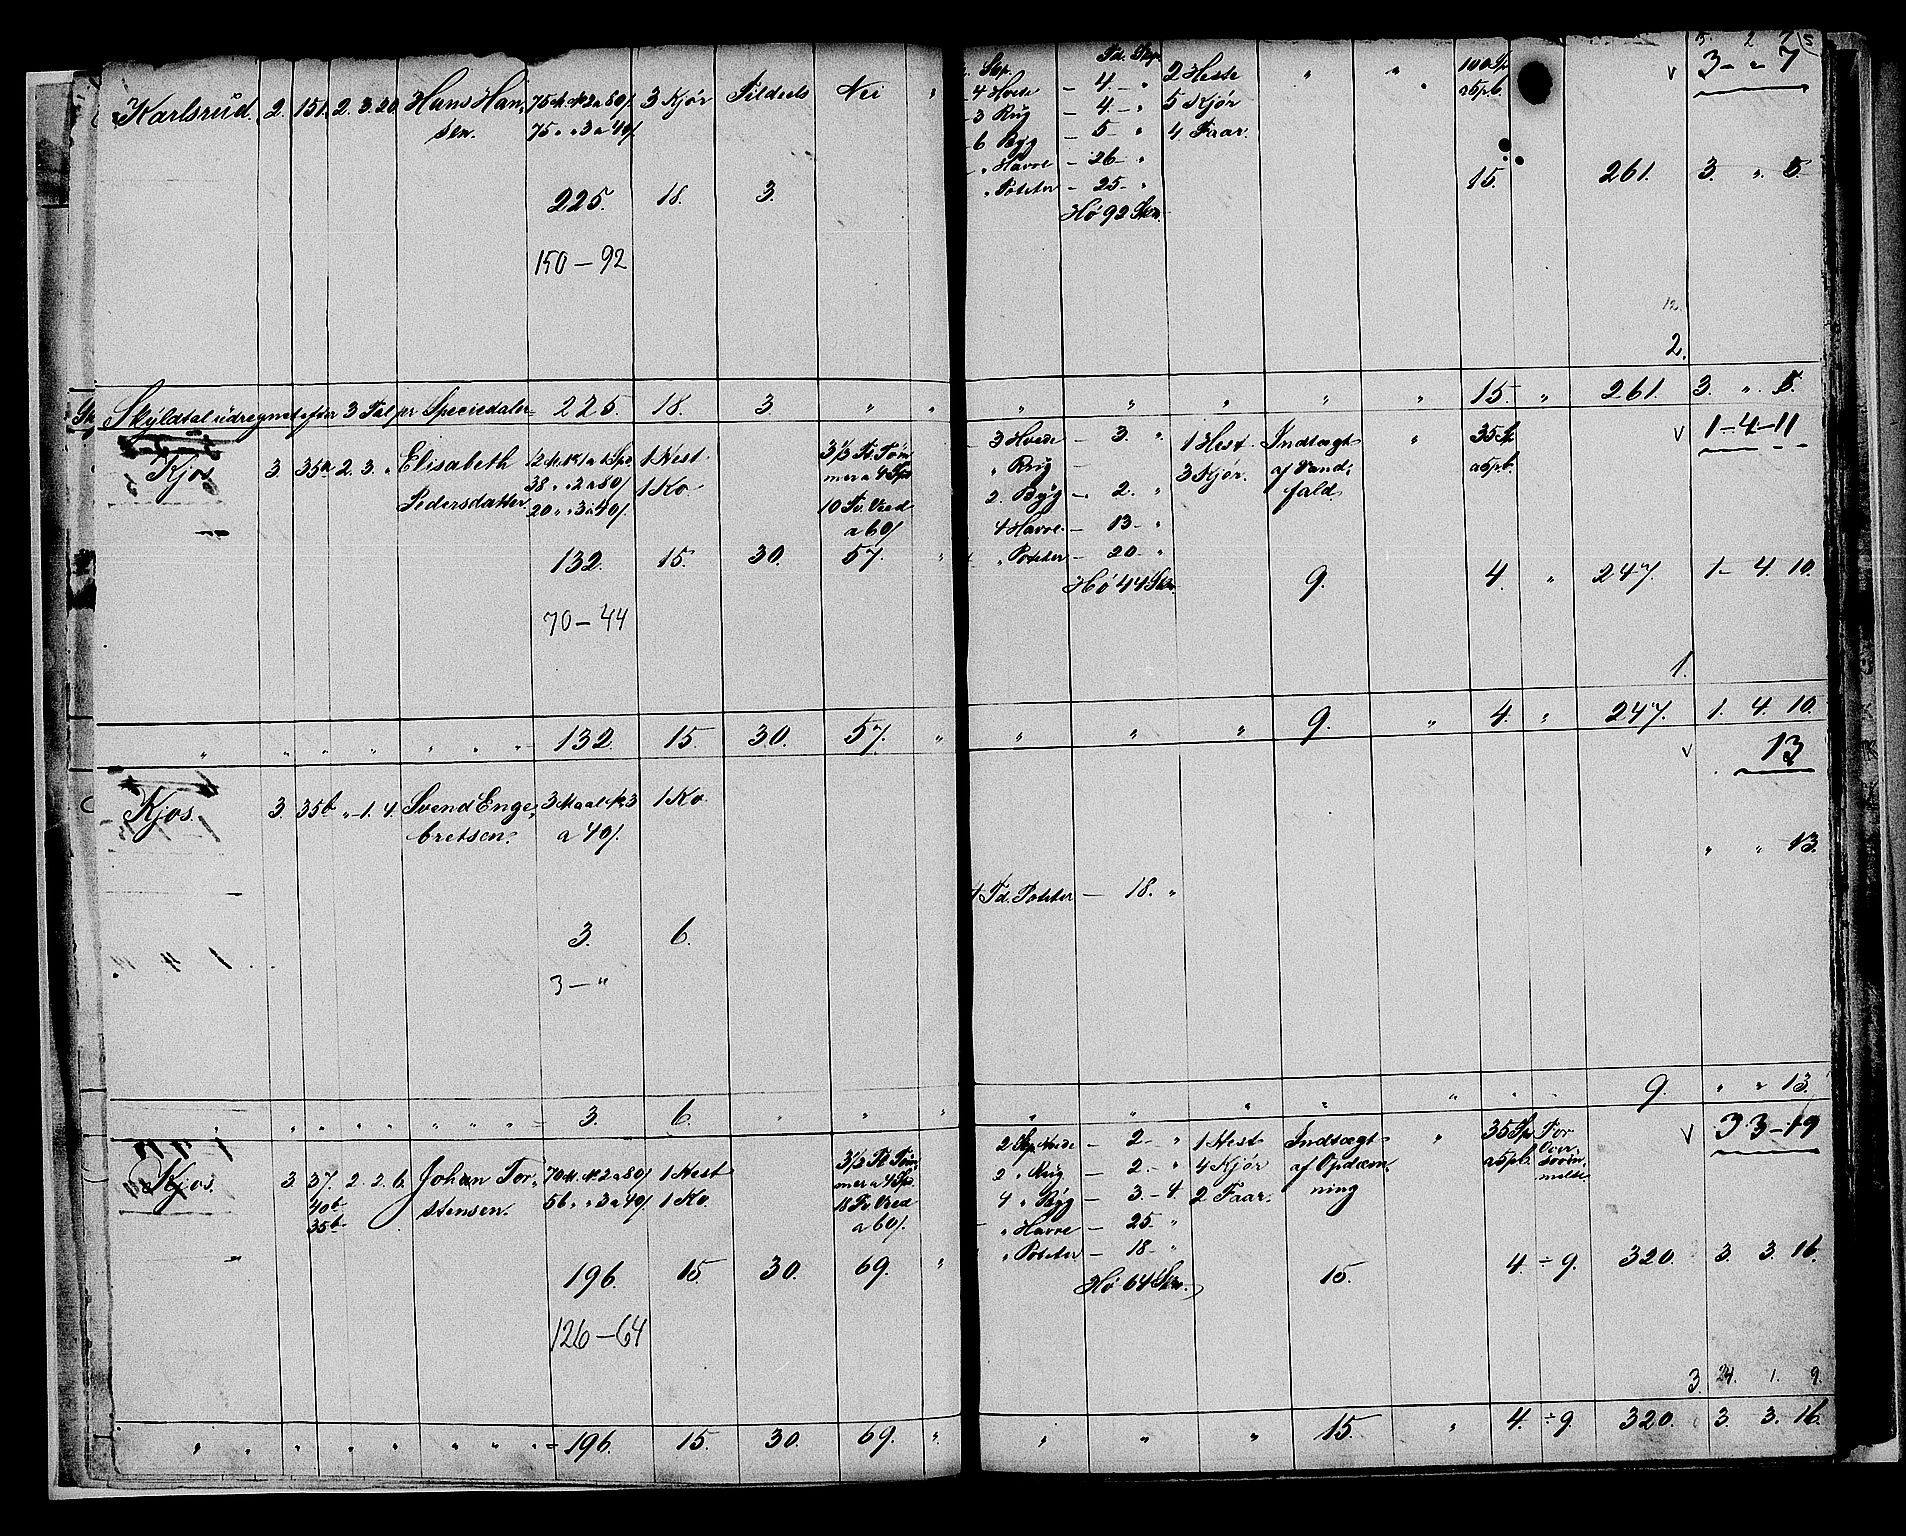 Karlsrud. 2. 151. 2. 3. 20. Hans Han- 75 M. No 2 a 80/ 3 Kjør Tildeels Nei "
sen. 75 " " 3 a 40/
225. 18. 3.
150 – 92
Skp. Td. Skp. 2 Heste " " 100 Sp 3 - " 7
4 Hvede – 4. – " 5 Kjør a 5 pCt.
3 Rug – 4 – " 4 Faar.
6 Byg – 5 – "
" Havre – 26 – " 15. 261. 3. " 5.
" Poteter – 25 – "
Hø 92 Skp.
12.
2.
Skyldtal udregnet efter 3 Tal pr Speciedaler = 225. 18. 3 " "
" " " " " 15. " 261. 3. " 5.
Kjos 3. 35a 2. 3. " Elisabeth 12 M. No 1 a 1 Spd 1 Hest
Pedersdatter 38 " " 2 a 80/ 1 Ko.
20 " " 3 a 40/
3½ Tt. Tøm-
mer a 4 Spd
10 Fv. Ved
a 60/
132. 15. 30. 57. "
70 – 44
3 Hvede – 3. " 1 Hest. Indtægt " 35 Sp 1 – 4 – 11
" Rug 3 Kjør. af Vand- a 5 pCt.
2. Byg – 2. " fald.
4 Havre – 13 – "
" Poteter – 20 – "
Hø 44 Skp. 9. 4. " 247. 1 – 4. 10.
1.
" " " " " " " 132. 15. 30. 57. "
" " " 9. " 4. " 247. 1. 4. 10.
Kjos. 3. 35b " 1. 4. Svend Enge- 3 Maal No 3 1 Ko.
bretsen. a 40/.
3. 6.
3 – "
13
" " 13.
Td. Poteter – 18. "
" " " " " " " = 3. 6. " " "
" " " " " " " 9. " " 13.
Kjos. 3. 37. 2. 2. 6. Johan Tor- 70 M. No 2 a 80/ 1 Hest
40b stensen. 56 " " 3 a 40/ 1 Ko.
35b
3½ Tt. Tøm-
mer a 4 Spd.
18 Fv. Ved
a 60/.
196. 15. 30. 69. "
126 – 64
2 Skp. Hvede – 2 – " 1 Hest Indtægt " 35 Sp For 3 3 – 19
2 " Rug – 2. – " 4 Kjør af Opdæm- a 5 pCt. Over-
4 " Byg – 3. – 4. 2 Faar. ning
" Havre – 25. "
" Poteter – 18 – "
Hø 64 Skp. 15. 4. ÷ 9. 320. 3. 3. 16.
3. 24. 1. 9.
" " " " " " " " = 196. 15. 30. 69. "
" " " 15. " 4. ÷ 9. 320. 3. 3. 16.